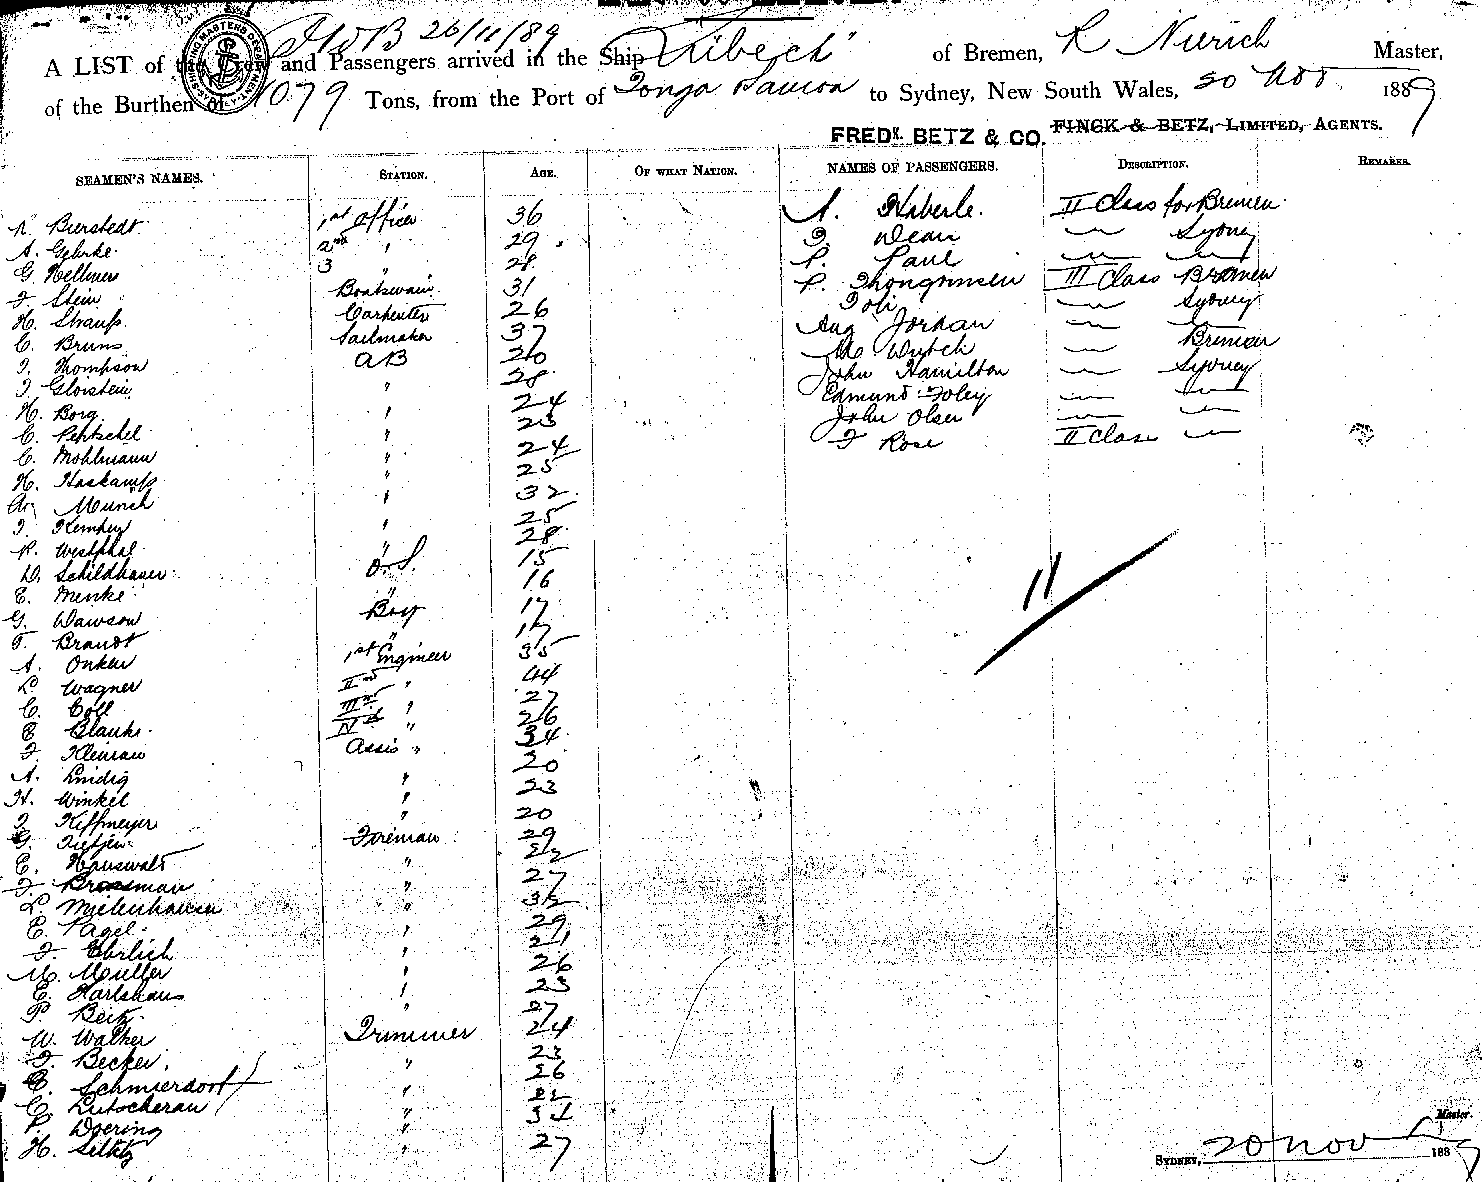 26/11/89
A LIST of the Crew and Passengers arrived in the Ship "Lübeck" of Bremen, R Nierich Master,
of the Burthen of 1079 Tons, from the Port of Tonga Samoa to Sydney, New South Wales, 20 Nov 1889
FREDK. BETZ & CO. FINCK & BETZ, LIMITED, AGENTS.
SEAMEN'S NAMES. STATION. AGE. OF WHAT NATION. NAMES OF PASSENGERS. DESCRIPTION. REMARKS.
Bierstedt 1st officer 36
A. Gehrke 2nd " 29
G. Hellmers 3 " 28
F. Stein Boatswain 31
H. Strauß Carpenter 26
C. Bruns Sailmaker 37
J. Thompson AB 20
J. Gloistein " 28
H. Borg " 24
C. Pertschel " 23
C. Mohlmann " 24
H. Haskamp " 25
Munch " 32
" 25
R. Westphal " 28
D. Schildhauer O.S. 15
E. Menke " 16
G. Dawson Boy 17
F. Brandt " 17
A. Onken 1st Engineer 35
L. Wagner II " 44
C. Coll III " 27
E Blanke IV " 26
F. Kleinau Assis " 34
A. " 20
H. Winkel " 23
J. Kiffmeyer " 20
G. Tietjen Fireman 29
E. Hauswalt " 22
F " 27
L. " 32
E. Pagel " 29
F. Ehrlich " 21
M. Muller " 26
E. Karlshaus " 23
P. Beitz " 27
W. Walker Trimmer 24
F. Becker " 23
C. Schmierdorf " 26
C. " 22
P. Doering " 31
H. " 27
A. Haberle. II Class for Bremen
J. Dean " Sydney
P. Paul " "
P. III Class Bremen
" Sydney
Aug Jordan " "
" Bremen
John Hamilton " Sydney
Edmund Foley " "
John Olsen " "
F Rose II Class "
11
Master.
SYDNEY, 20 Nov 1889